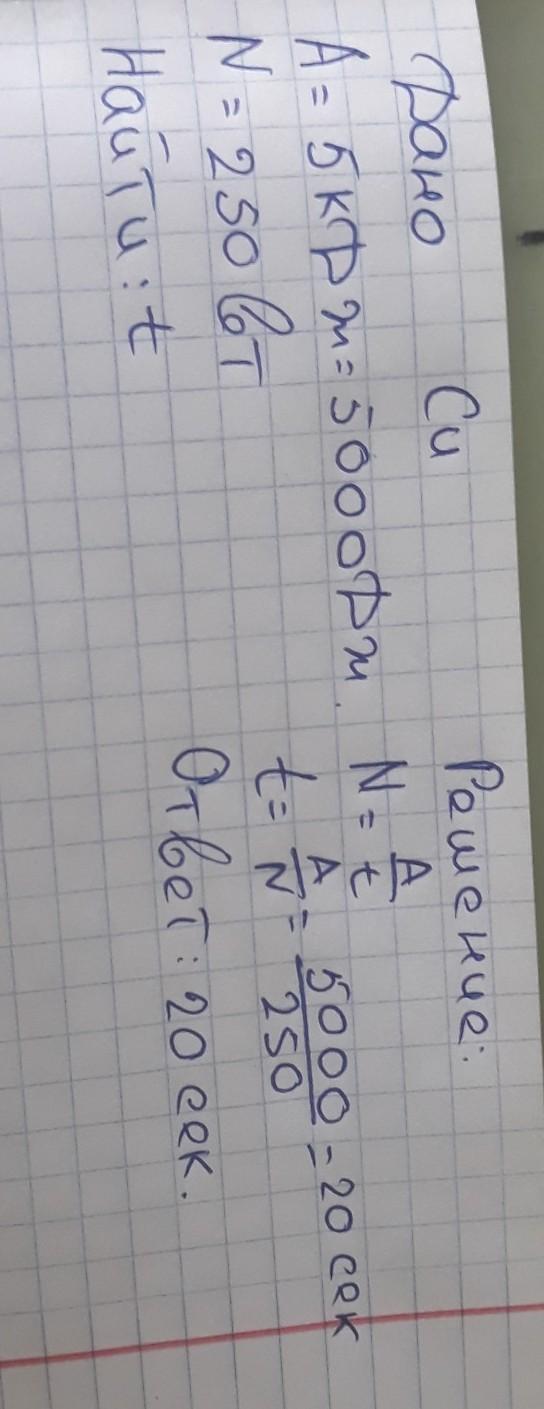 Дано Си
A = 5 кДж = 5000 Дж.
N = 250 Вт
Найти: t
Решение:
N = A/t
t = A/N = 5000/250 = 20 сек
Ответ: 20 сек.